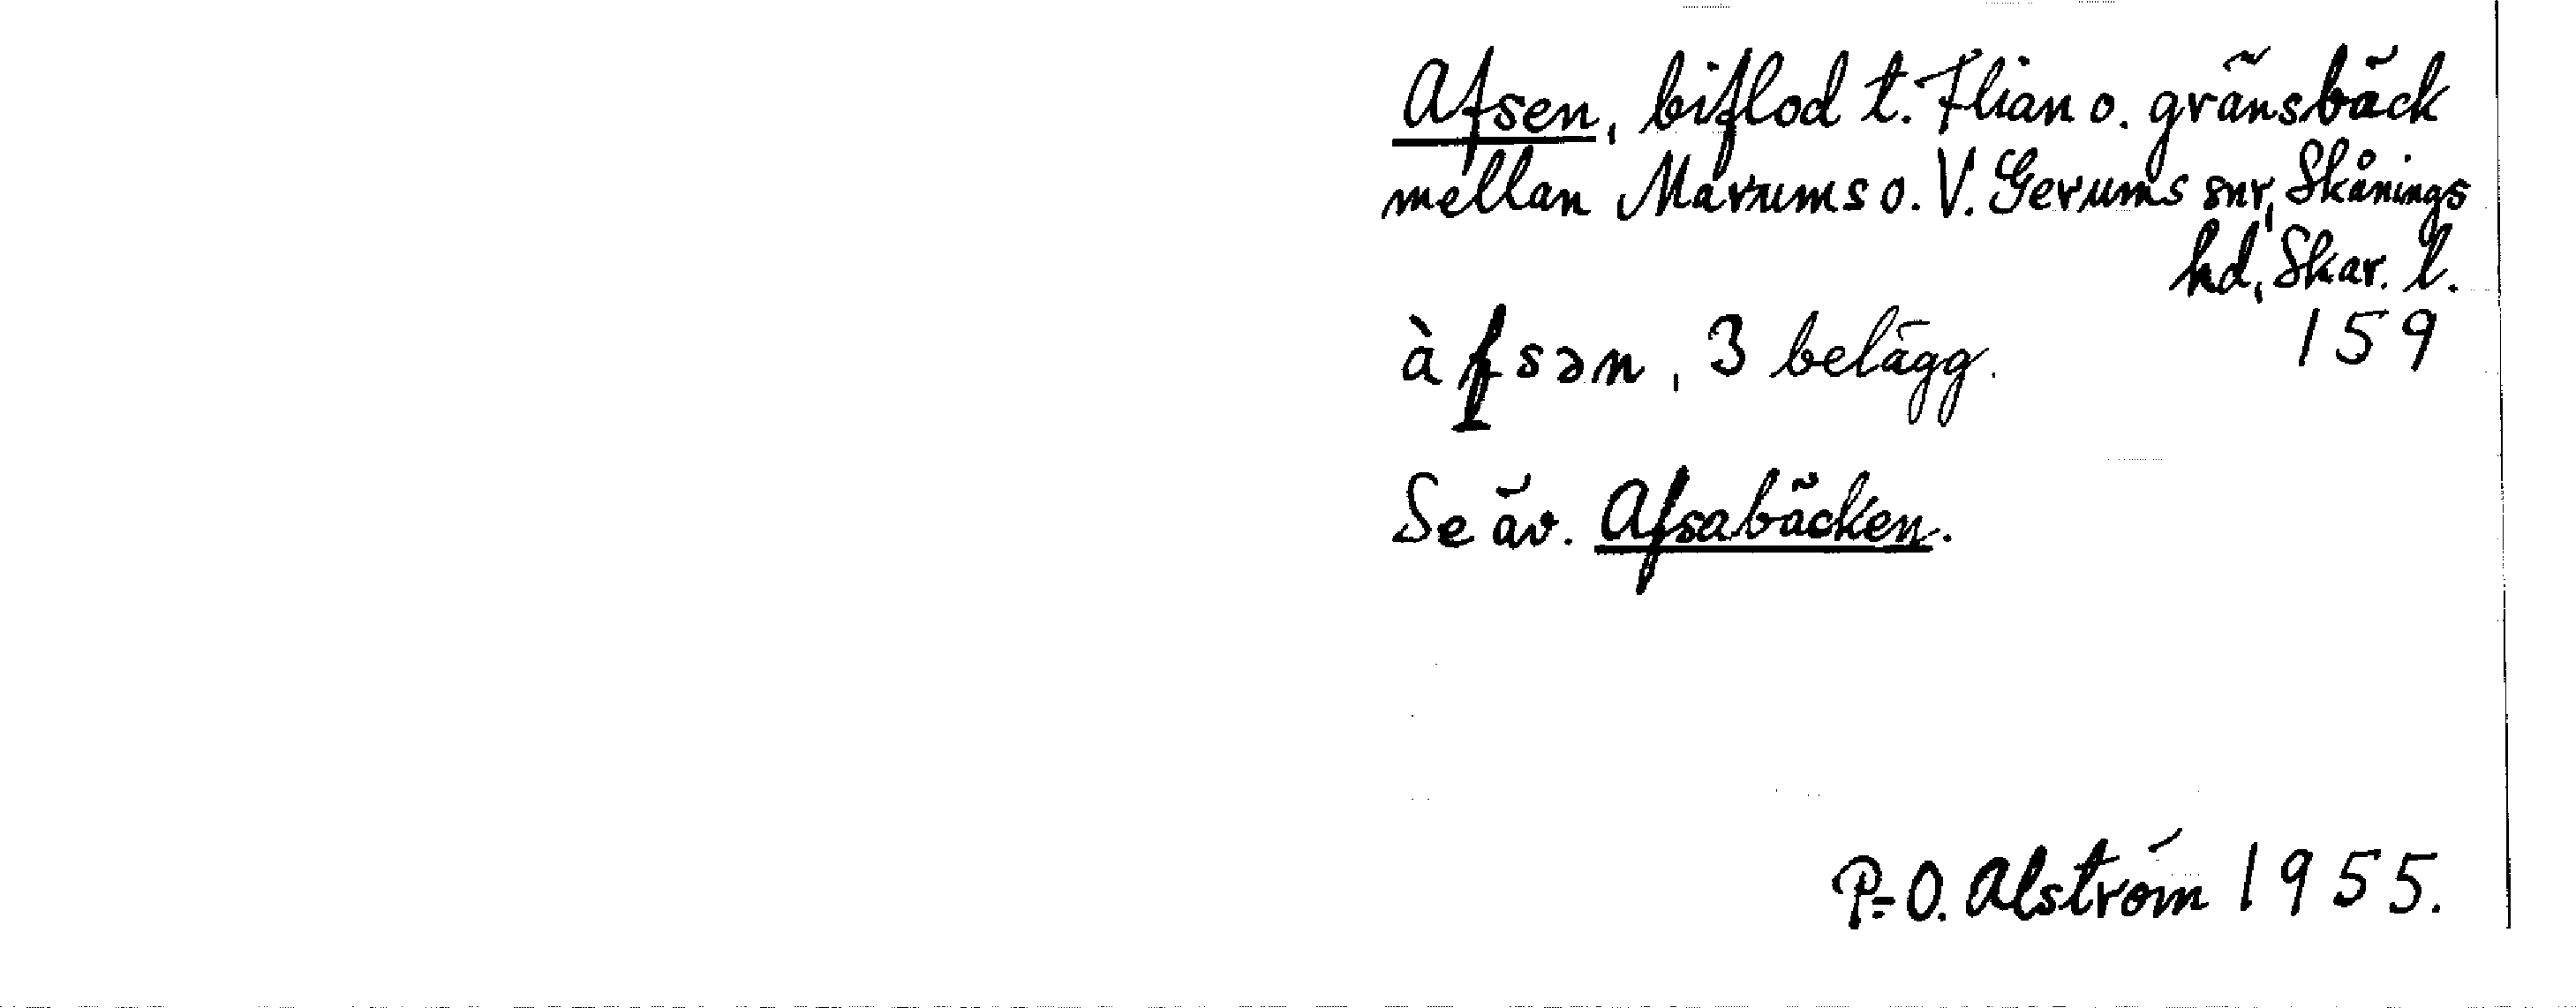 Afsen, biflod t. Flian o. gränsbäck
mellan Marums o. V. Gerums snr, Skånings
hd, Skar. l.
àfsən, 3 belägg. 159
Se äv. Afsabäcken.
P.-O. Alström 1955.